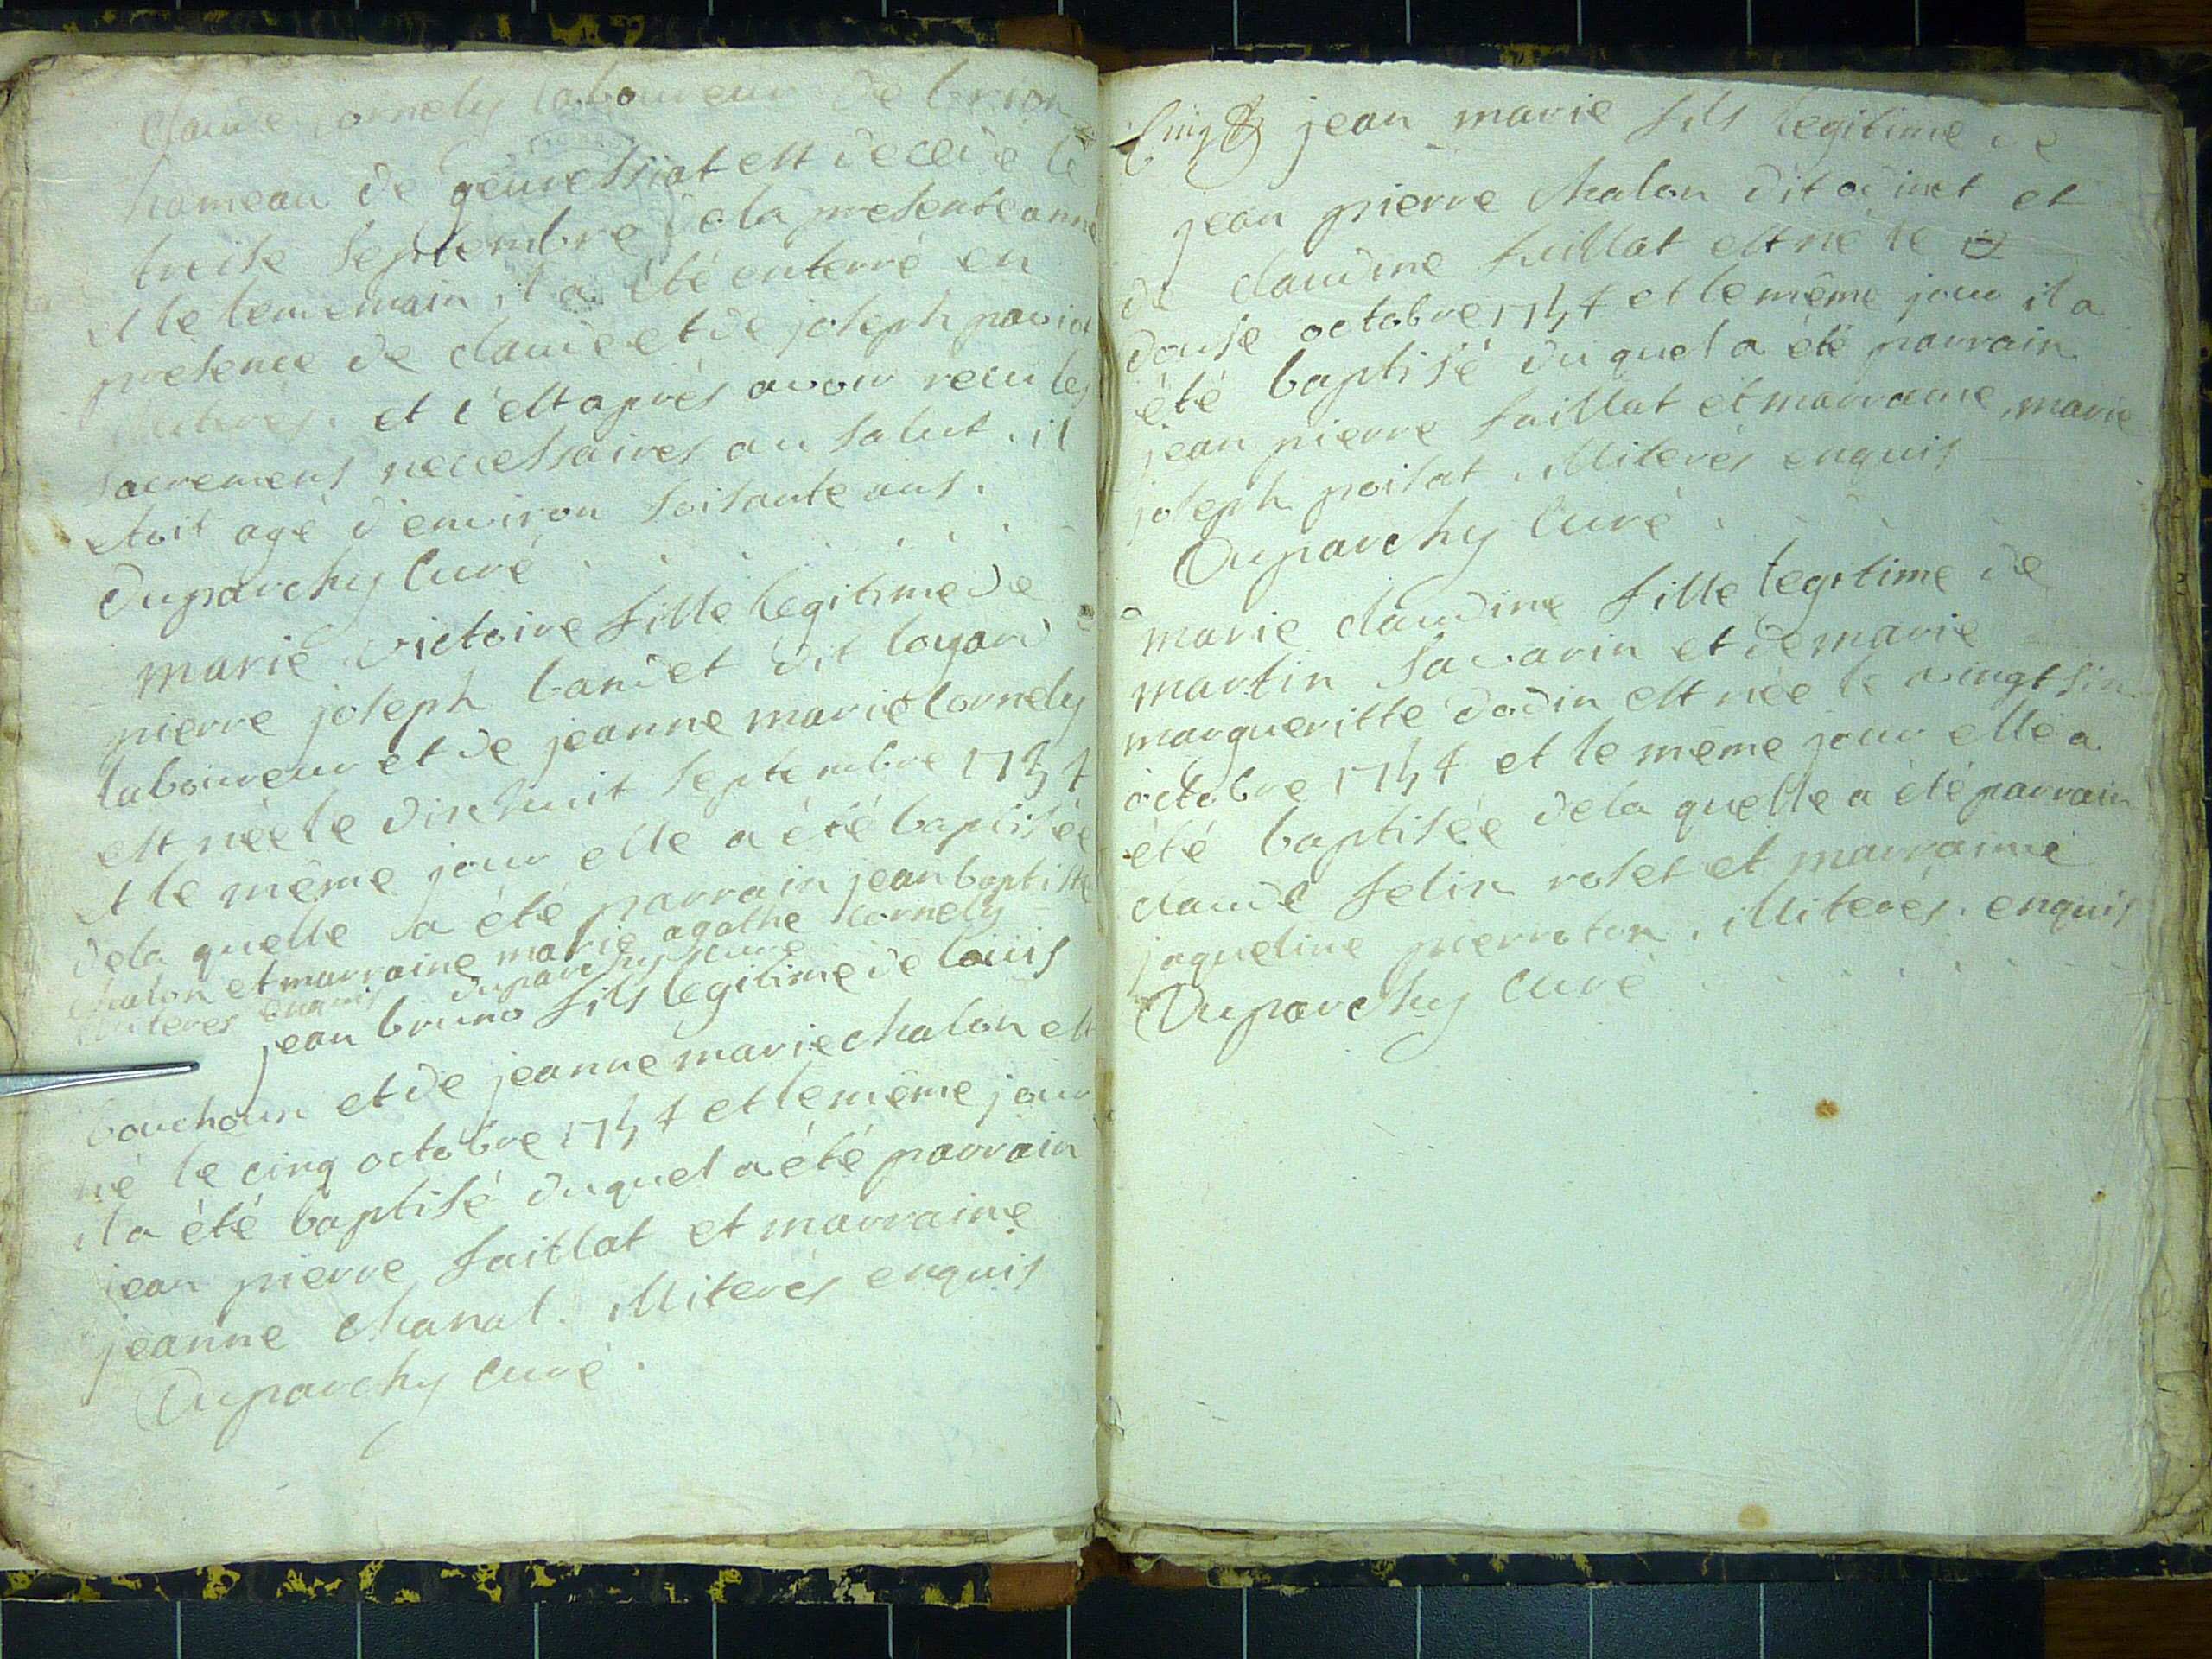 Claude Cornely laboureur de brion
hameau de genissiat est decedé le
treise septembre de la presente anné
et le lendemain il a été enterré en
presence de claude et de joseph
illiterés. et c'est aprés avoir recu les
sacremens necessaires au salut. il
etoit agé d'environ soisante ans.
Duparchy Curé
marie victoire fille legitime de
pierre joseph bandet dit loyard
laboureur et de jeanne marie Cornely
est née le dixhuit septembre 1754
et le même jour elle a été baptisée
de la quelle a été parrain jean baptiste
chalon et marraine marie agathe Cornely
illiterés enquis Duparchy Curé
jean bruno fils legitime de louis
bouchoux et de jeanne marie chalon est
né le cinq octobre 1754 et le même jour
il a été baptisé duquel a été parrain
jean pierre faillat et marraine
jeanne chanal. illiterés enquis
Duparchy Curé
jean marie fils legitime de
jean pierre chalon dit odinet et
de claudine faillat est né le
douse octobre 1754 et le même jour il a
été baptisé du quel a été parrain
jean pierre faillat et marraine, marie
joseph poisat. illiterés enquis
Duparchy Curé
marie claudine fille legitime de
martin savarin et de marie
margueritte dodin est née le vingt six
octobre 1754 et le même jour elle a
été baptisée de la quelle a été parrain
claude felix roset et marraine
jaqueline pierroton. illiterés. enquis
Duparchy Curé